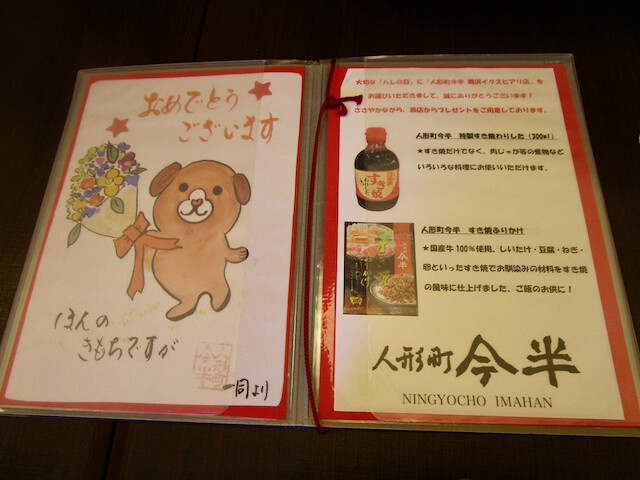 おめでとう
ございます
ほんの
きもちですが
一同より
大切な「ハレの日」に「人形町今半 舞浜イクスピアリ店」を
お選びいただきまして、誠にありがとうございます!
ささやかながら、当店からプレゼントをご用意しております。
人形町今半 特製すき焼わりした(300ml)
★すき焼だけでなく、肉じゃが等の煮物など
いろいろな料理にお使いいただけます。
すき焼
わりした
人形町今半 すき焼ふりかけ
★国産牛100%使用、しいたけ・豆腐・ねぎ・
卵といったすき焼でお馴染みの材料をすき焼
の風味に仕上げました、ご飯のお供に!
今半
人形町 今半
NINGYOCHO IMAHAN